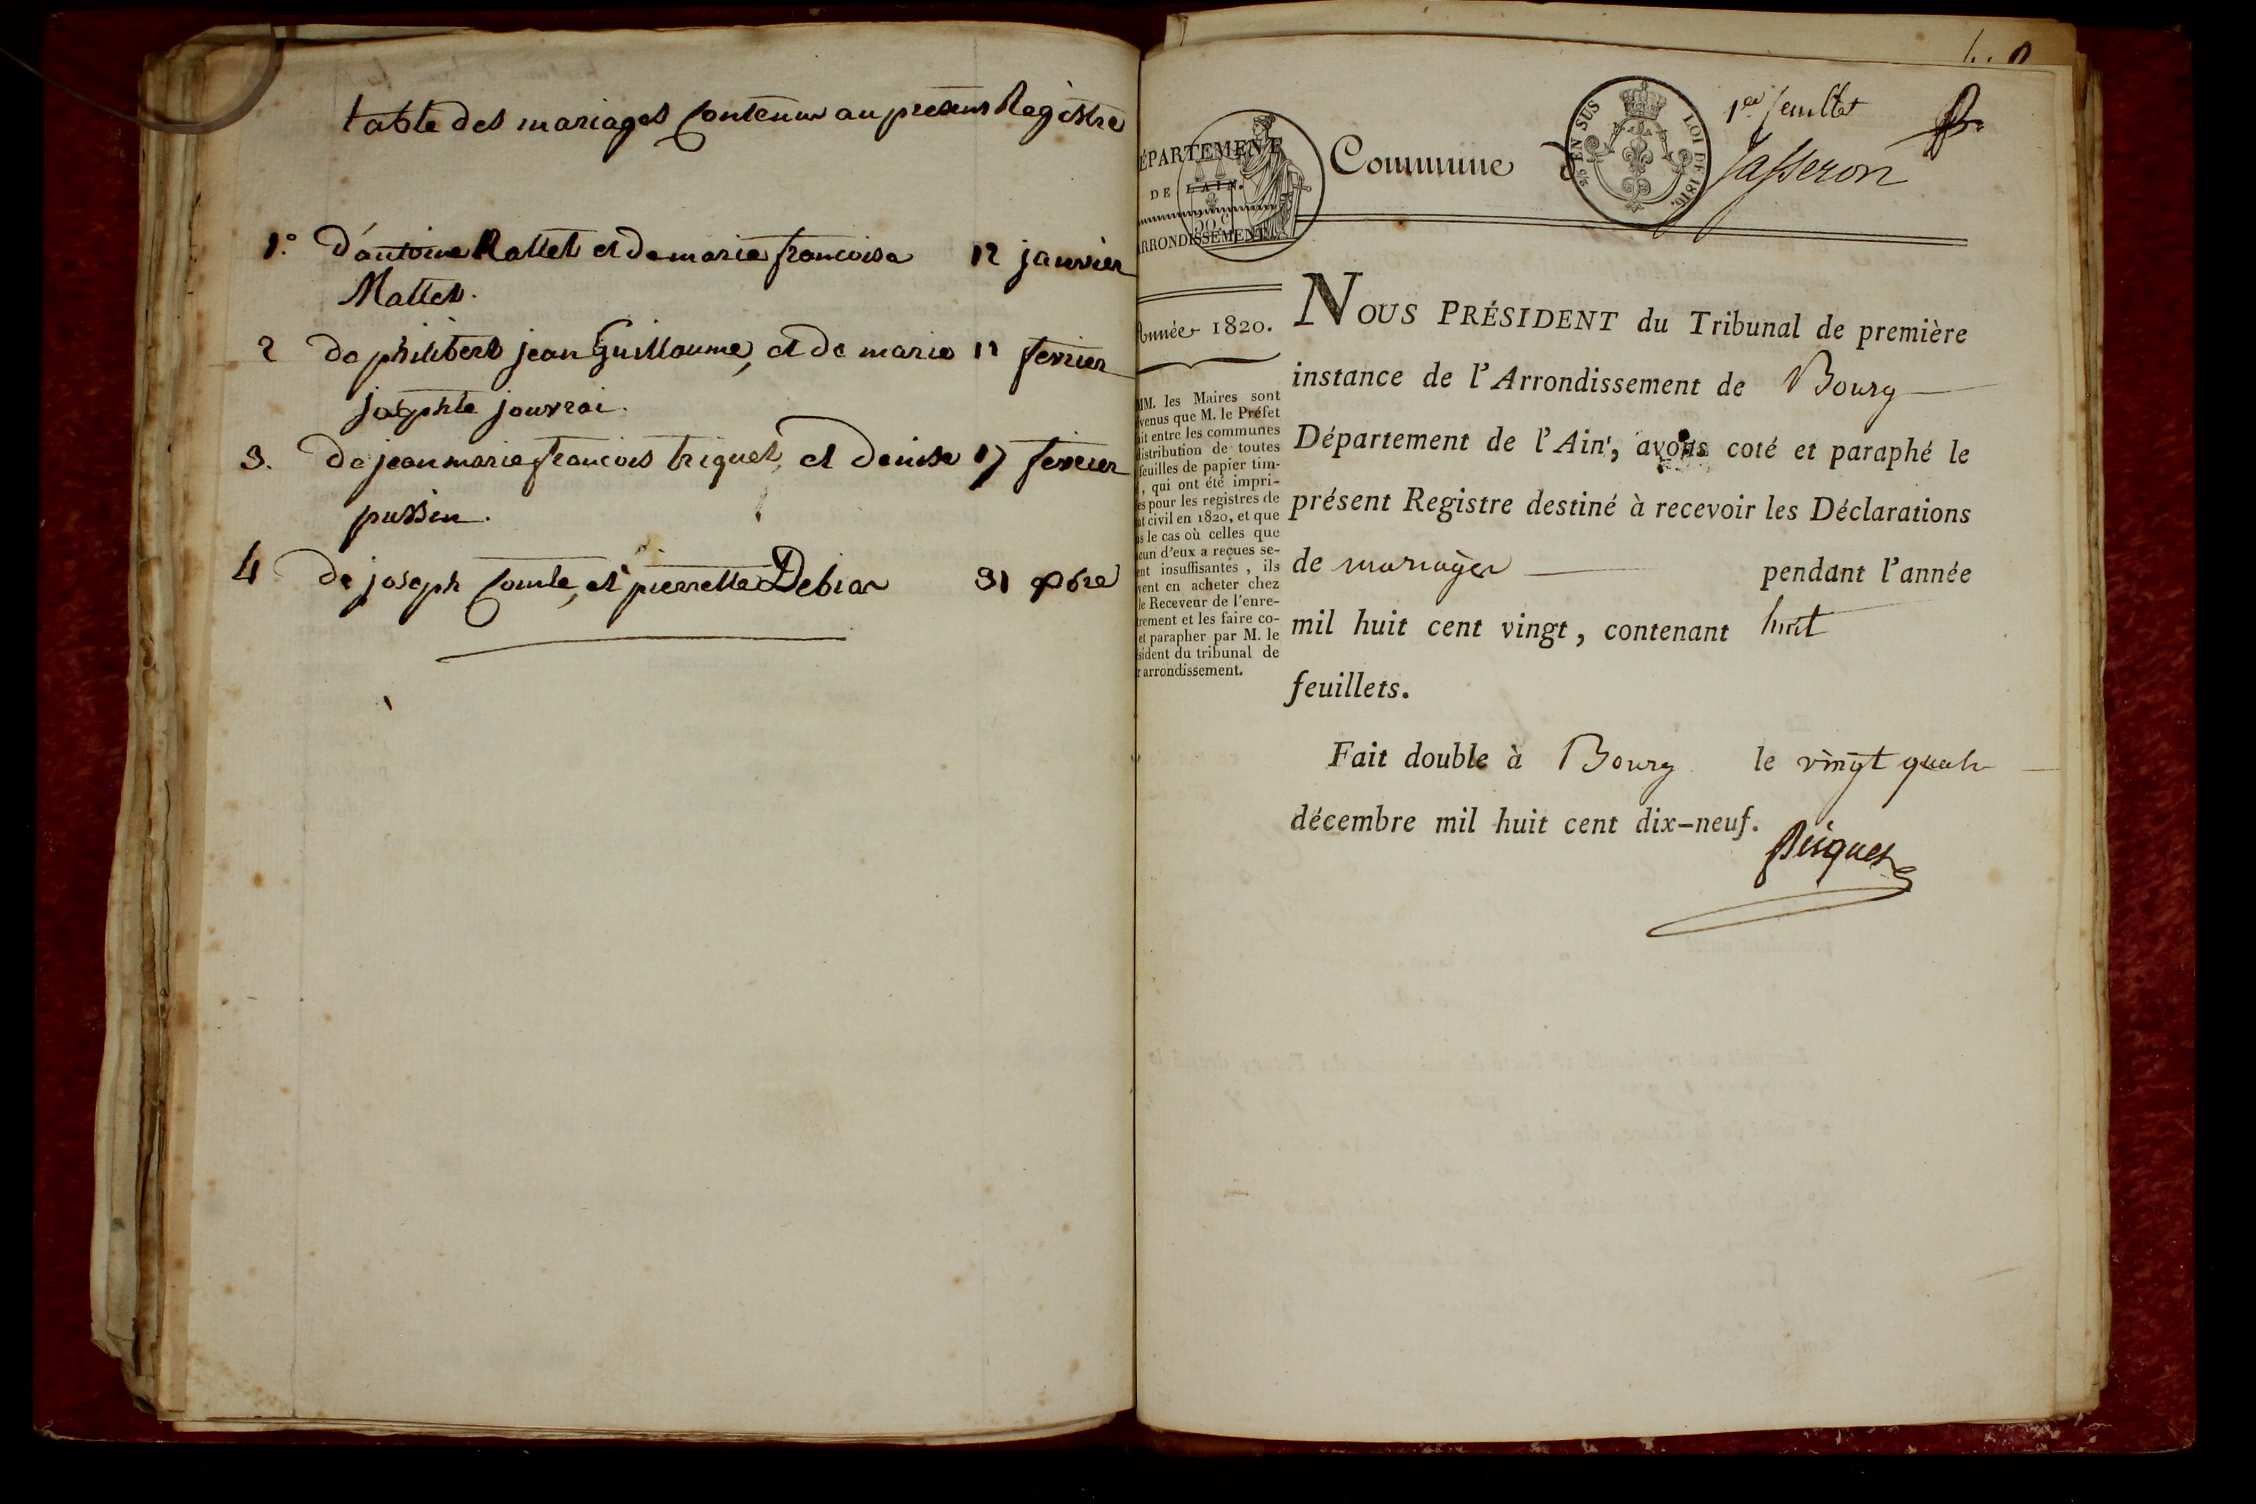 table des mariages Contenus au présent Régistre
1.° d'antoine Rattet et de marie francoise 12 janvier
Mattet.
2 de philibert jean Guillaume, et de marie 11 fevrier
josephte jouvrai.
3. de jean marie francois triquet, et denise 17 fevrier
pussin.
4 de joseph Comte, et pierrette Debiar 31 8bre
1er feuillet
DÉPARTEMENT
DE L'AIN.
ARRONDISSEMENT
50 C
EN SUS
LOI DE 1816.
Commune de Jasseron
Année 1820.
MM. les Maires sont
venus que M. le Préfet
ait entre les communes
distribution de toutes
feuilles de papier tim-
, qui ont été impri-
es pour les registres de
at civil en 1820, et que
s le cas où celles que
cun d'eux a reçues se-
ent insuffisantes, ils
vent en acheter chez
le Receveur de l'enre-
trement et les faire co-
et parapher par M. le
sident du tribunal de
r arrondissement.
NOUS PRÉSIDENT du Tribunal de première
instance de l'Arrondissement de Bourg
Département de l'Ain, avons coté et paraphé le
présent Registre destiné à recevoir les Déclarations
de mariages pendant l'année
mil huit cent vingt, contenant huit
feuillets.
Fait double à Bourg le vingt quatre
décembre mil huit cent dix-neuf.